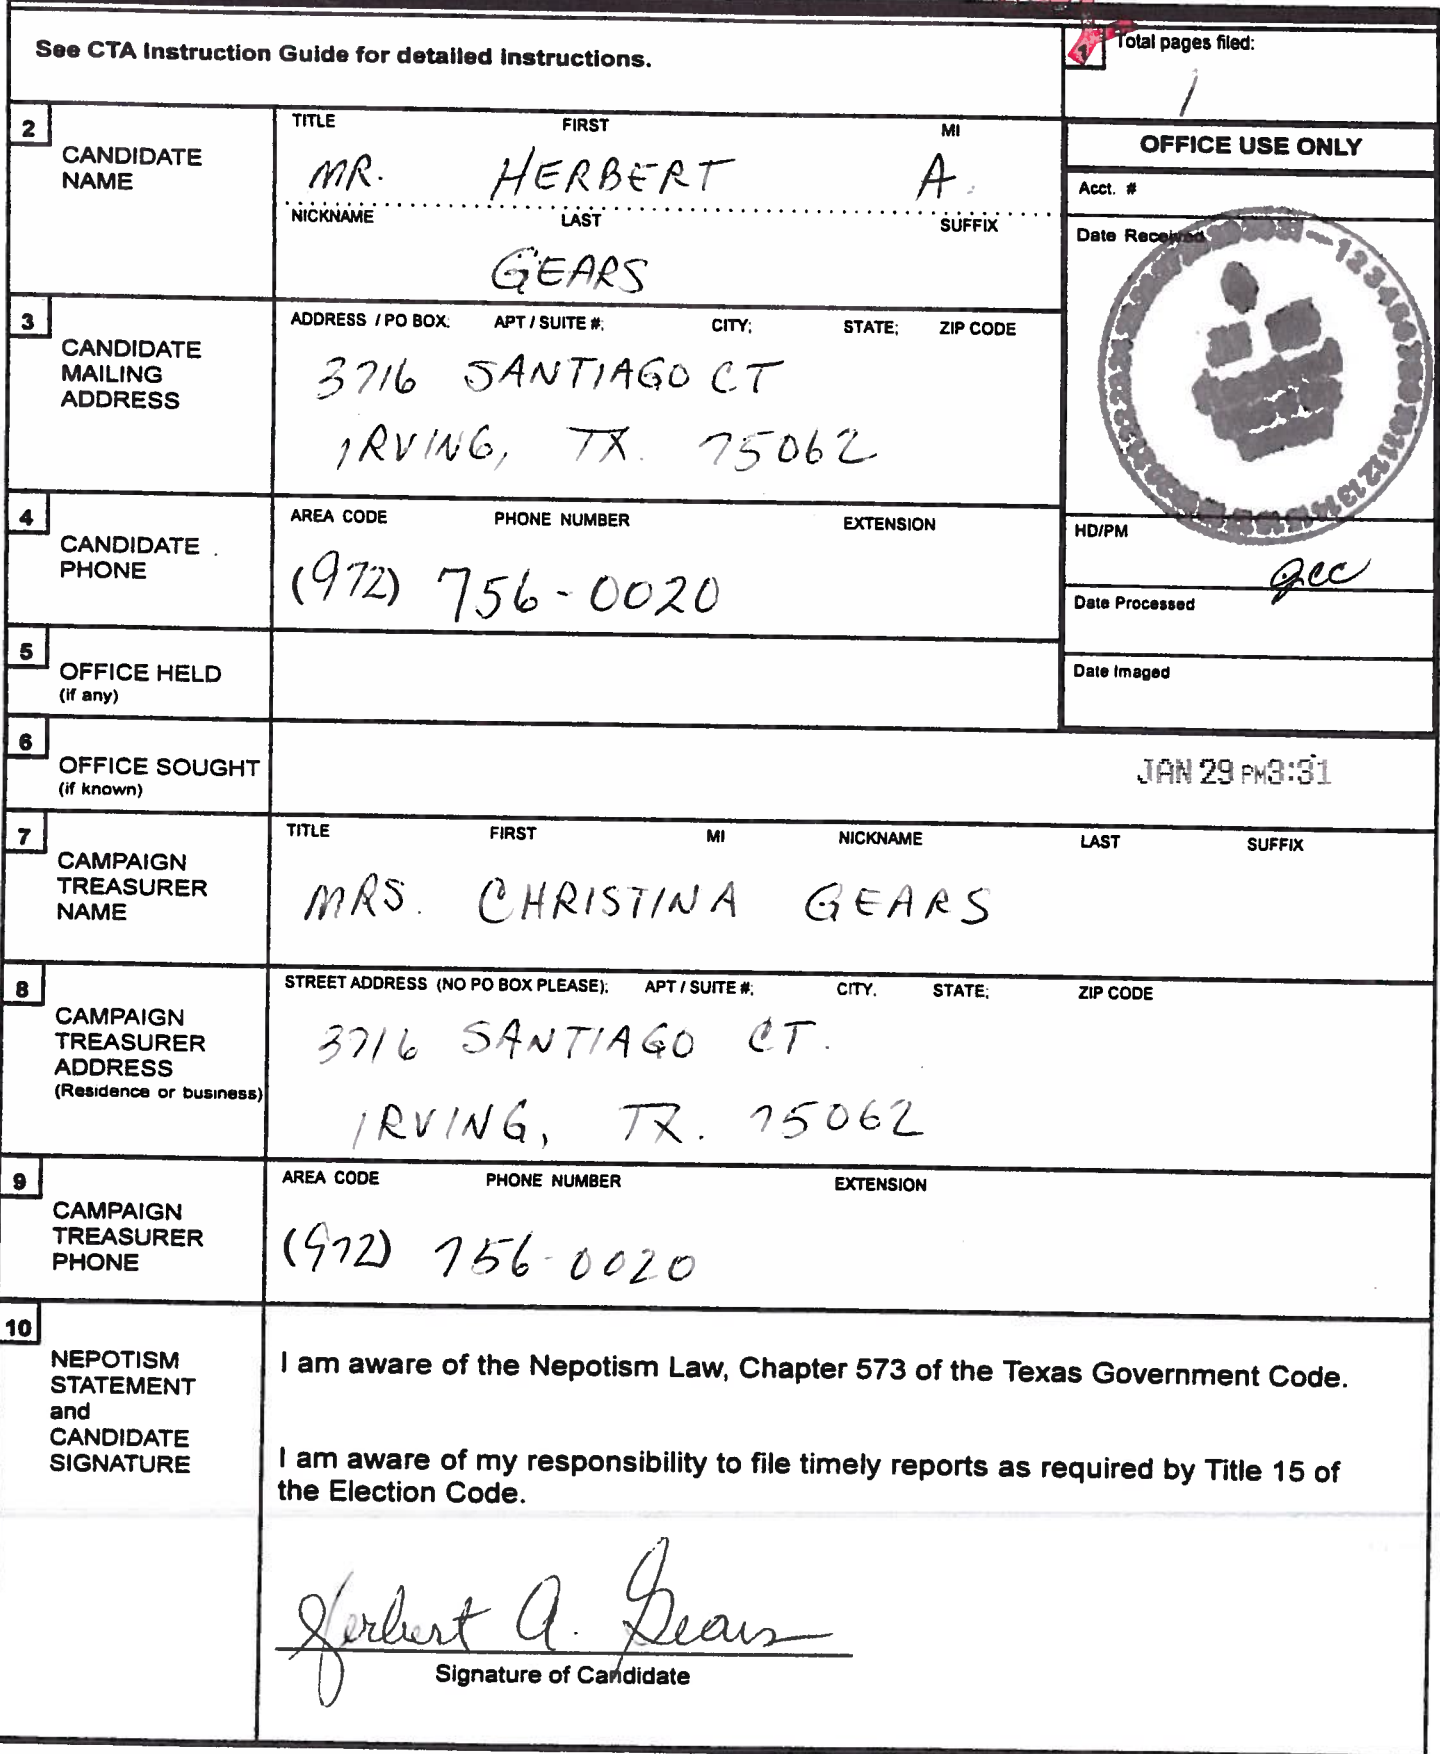 See CTA Instruction Guide for detailed instructions.
1 Total pages filed:
1
2 CANDIDATE NAME
TITLE FIRST MI
MR. HERBERT A.
NICKNAME LAST SUFFIX
GEARS
OFFICE USE ONLY
Acct. #
Date Received
3 CANDIDATE MAILING ADDRESS
ADDRESS / PO BOX; APT / SUITE #; CITY; STATE; ZIP CODE
3716 SANTIAGO CT
IRVING, TX. 75062
4 CANDIDATE PHONE
AREA CODE PHONE NUMBER EXTENSION
(972) 756-0020
HD/PM
gcc
Date Processed
Date Imaged
5 OFFICE HELD
(if any)
6 OFFICE SOUGHT
(if known)
JAN 29 PM3:31
7 CAMPAIGN TREASURER NAME
TITLE FIRST MI NICKNAME LAST SUFFIX
MRS. CHRISTINA GEARS
8 CAMPAIGN TREASURER ADDRESS
(Residence or business)
STREET ADDRESS (NO PO BOX PLEASE); APT / SUITE #; CITY. STATE; ZIP CODE
3716 SANTIAGO CT.
IRVING, TX. 75062
9 CAMPAIGN TREASURER PHONE
AREA CODE PHONE NUMBER EXTENSION
(972) 756-0020
10 NEPOTISM STATEMENT and CANDIDATE SIGNATURE
I am aware of the Nepotism Law, Chapter 573 of the Texas Government Code.
I am aware of my responsibility to file timely reports as required by Title 15 of
the Election Code.
Herbert A. Gears
Signature of Candidate